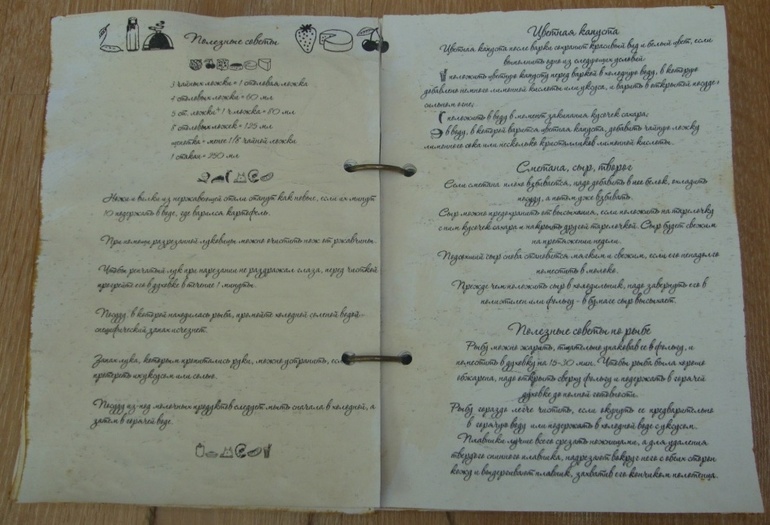 Полезные советы
3 чайных ложки = 1 столовая ложка
4 столовых ложки = 60 мл
5 ст. ложки + 1 ч ложка = 80 мл
8 столовых ложек = 125 мл
щепотка = менее 1/8 чайной ложки
1 стакан = 250 мл
Ножи и вилки из нержавеющей стали станут как новые, если их минут
10 подержать в воде, где варился картофель.
При помощи разрезанной луковицы можно очистить нож от ржавчины.
Чтобы репчатый лук при нарезании не раздражал глаза, перед чисткой
прогрейте его в духовке в течение 1 минуты.
Посуду, в которой находилась рыба, промойте холодной соленой водой-
специфический запах исчезнет.
Запах лука, которым пропитались руки, можно устранить, если
протереть их уксусом или солью.
Посуду из-под молочных продуктов следует мыть сначала в холодной, а
затем в горячей воде.
Цветная капуста
Цветная капуста после варки сохранит красивый вид и белый цвет, если
выполнить одно из следующих условий:
положить цветную капусту перед варкой в холодную воду, в которую
добавлено немного лимонной кислоты или уксуса, и варить в открытой посуде на
сильном огне;
положить в воду в момент закипания кусочек сахара;
в воду, в которой варится цветная капуста, добавить чайную ложку
лимонного сока или несколько кристалликов лимонной кислоты.
Сметана, сыр, творог
Если сметана плохо взбивается, надо добавить в нее белок, охладить
посуду, а потом уже взбивать.
Сыр можно предохранить от высыхания, если положить на тарелочку
с ним кусочек сахара и накрыть другой тарелочкой. Сыр будет свежим
на протяжении недели.
Подсохший сыр снова становится мягким и свежим, если его ненадолго
поместить в молоко.
Прежде чем положить сыр в холодильник, надо завернуть его в
полиэтилен или фольгу - в бумаге сыр высыхает.
Полезные советы по рыбе
Рыбу можно жарить, тщательно упаковав ее в фольгу, и
поместить в духовку на 15-30 мин. Чтобы рыба была хорошо
обжарена, надо открыть сверху фольгу и подержать в горячей
духовке до полной готовности.
Рыбу гораздо легче чистить, если окунуть ее предварительно
в горячую воду или подержать в холодной воде с уксусом.
Плавники лучше всего срезать ножницами, а для удаления
твердого спинного плавника, надрезают вокруг него с обеих сторон
кожу и выдергивают плавник, захватив его кончиком полотенца.